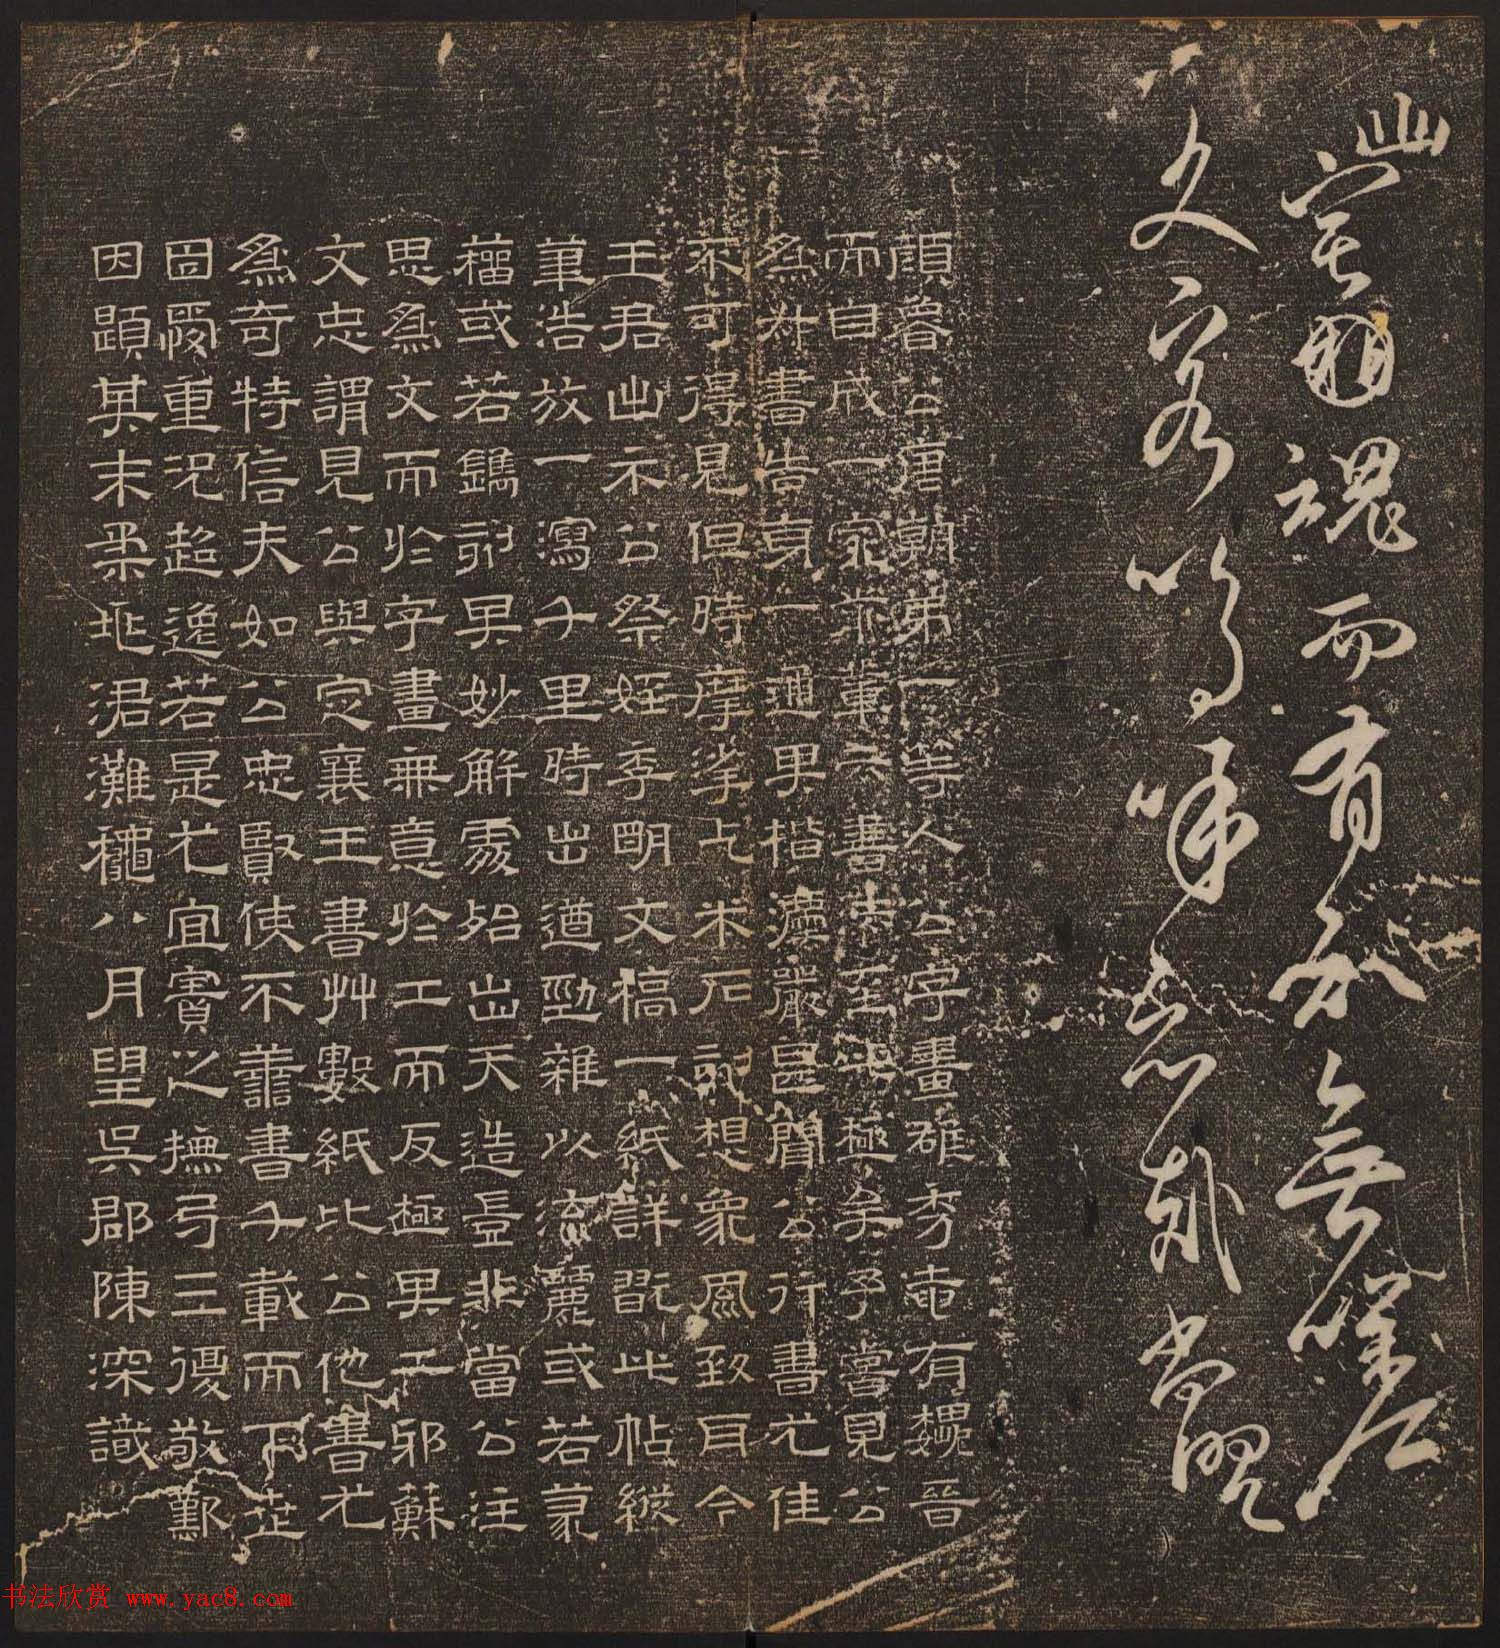 幽宅魂而有知無嗟
久客嗚呼哀哉尚饗
顏魯公唐朝第一等人公字畫雄秀奄有魏晉
而自成一家前輩云書法至此極矣予嘗見公
為書告身一通果楷灋嚴甚聞公行書尤佳
不可得見但時摩挲乞米石刻想象風致耳今
王君出示公祭姪季明文稿一紙詳翫此帖縱
筆浩放一瀉千里時出遒勁雜以流麗或若篆
籀或若鐫刻其妙解處殆出天造豈非當公注
思為文而於字畫無意於工而反極其工邪蘇
文忠謂見公與定襄王書艸數紙比公他書尤
為奇特信夫如公忠賢使不善書千載而下世
固愛重況超逸若是尤宜寶之撫弓三復敬歎
因題其末柔兆涒灘龝八月望吳郡陳深識
书法欣赏 www.yac8.com